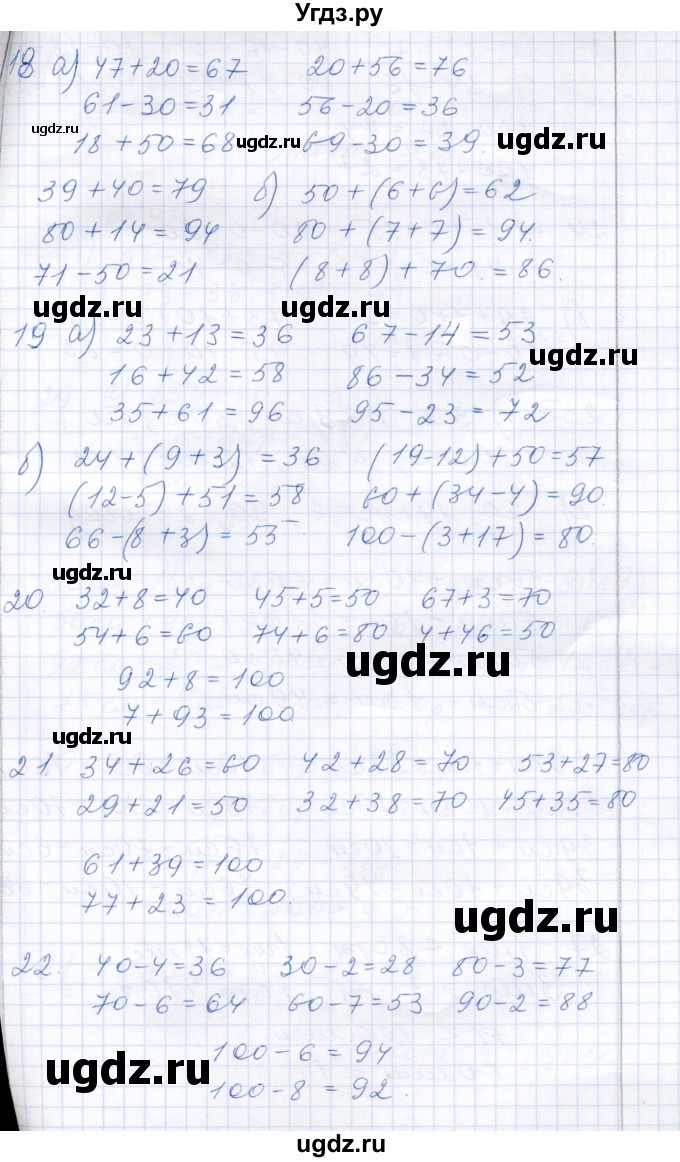 Угдз.ру
18 а) 47+20=67 20+56=76
61-30=31 56-20=36
ugdz.ru
18+50=68 ugdz.ru 69-30=39. ugdz.ru
39+40=79 б) 50+(6+6)=62
80+14=94 80+(7+7)=94.
71-50=21 (8+8)+70.=86.
ugdz.ru ugdz.ru
19 а) 23+13=36 67-14=53
ugdz.ru
16+42=58 86-34=52
35+61=96 95-23=72
б) 24+(9+3)=36 (19-12)+50=57
(12-5)+51=58 60+(34-4)=90.
66-(8+3)=55 100-(3+17)=80.
ugdz.ru
20. 32+8=40 45+5=50 67+3=70
54+6=60 74+6=80 4+46=50
ugdz.ru
92+8=100
7+93=100
ugdz.ru
21. 34+26=60 42+28=70 53+27=80
29+21=50 32+38=70 45+35=80
61+39=100
77+23=100.
ugdz.ru
22. 40-4=36 30-2=28 80-3=77
70-6=64 60-7=53 90-2=88
100-6=94
ugdz.ru
100-8=92.
ugdz.ru
ugdz.ru